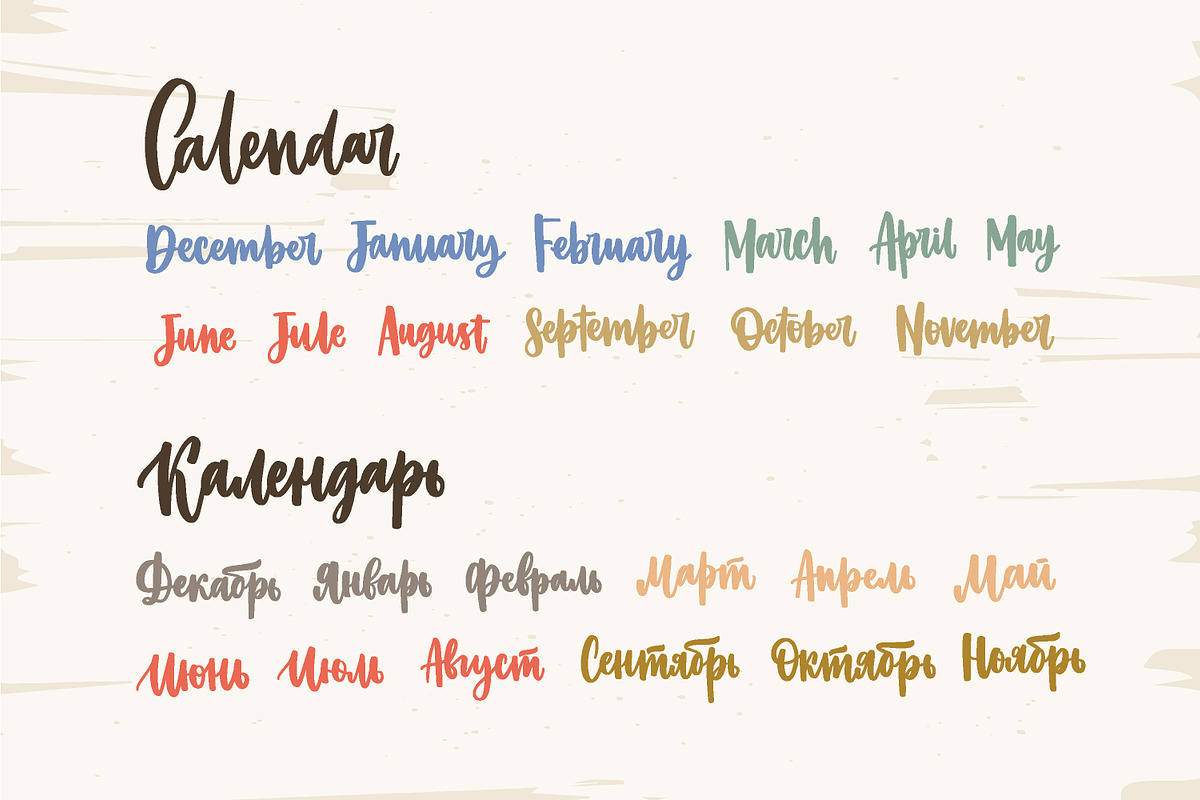 Calendar
December January February March April May
June Jule August September October November
Календарь
Декабрь Январь Февраль Март Апрель Май
Июнь Июль Август Сентябрь Октябрь Ноябрь